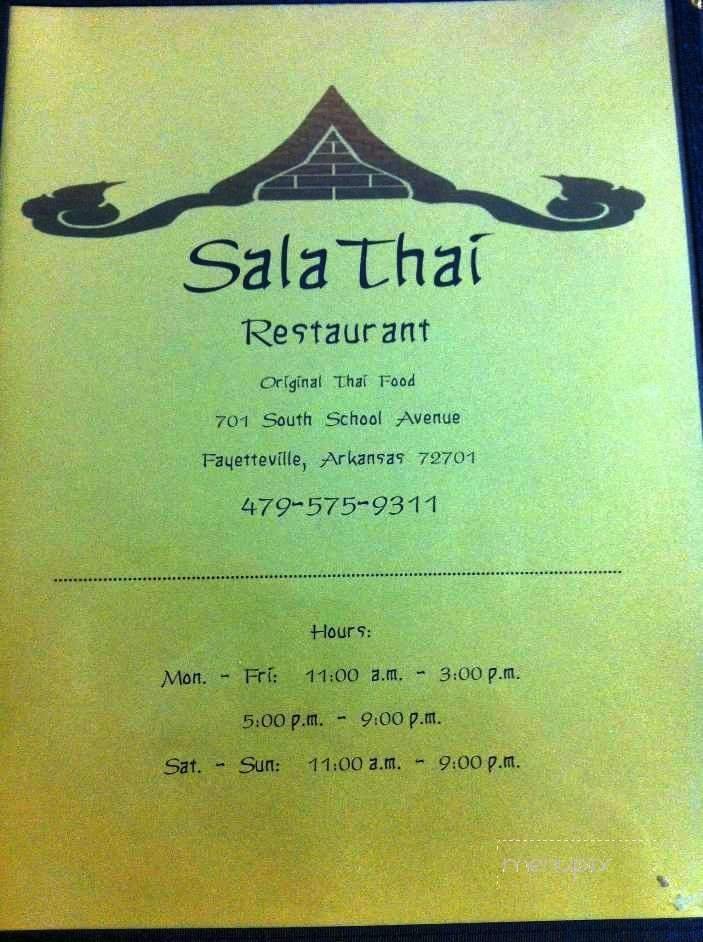 Sala Thai
Restaurant
Original Thai Food
701 South School Avenue
Fayetteville, Arkansas 72701
479-575-9311
Hours:
Mon. - Fri: 11:00 a.m. - 3:00 p.m.
5:00 p.m. - 9:00 p.m.
Sat. - Sun: 11:00 a.m. - 9:00 p.m.
menupix